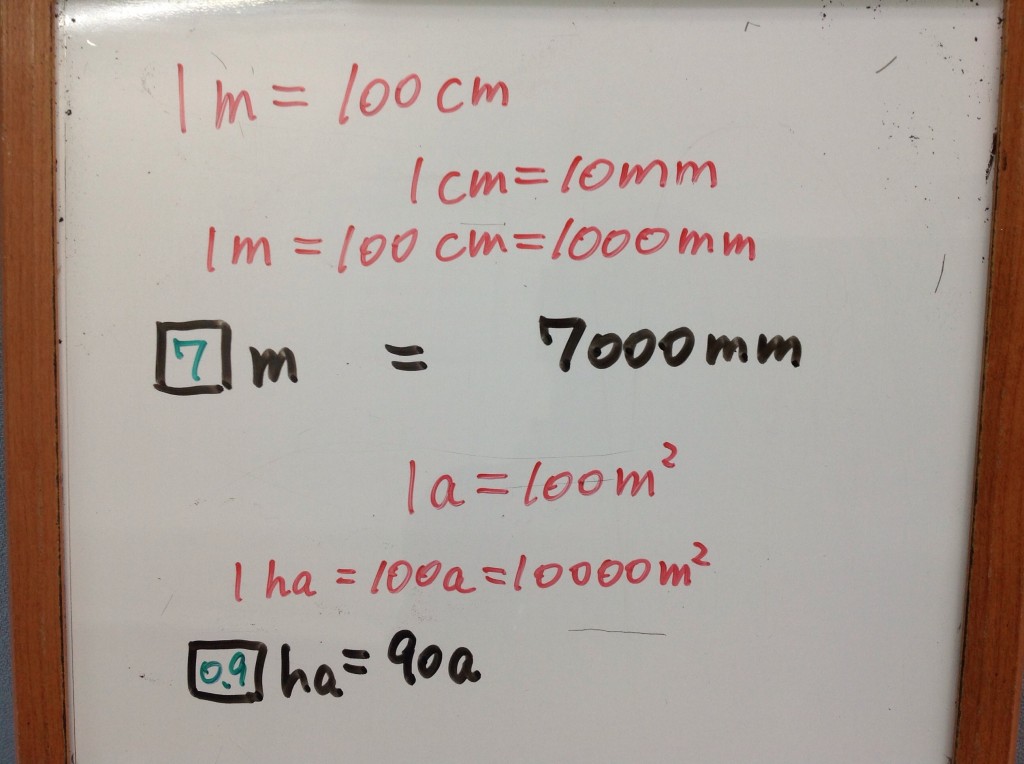 1m = 100cm
1cm = 10mm
1m = 100cm = 1000mm
7 m = 7000mm
1a = 100m²
1ha = 100a = 10000m²
0.9 ha = 90a